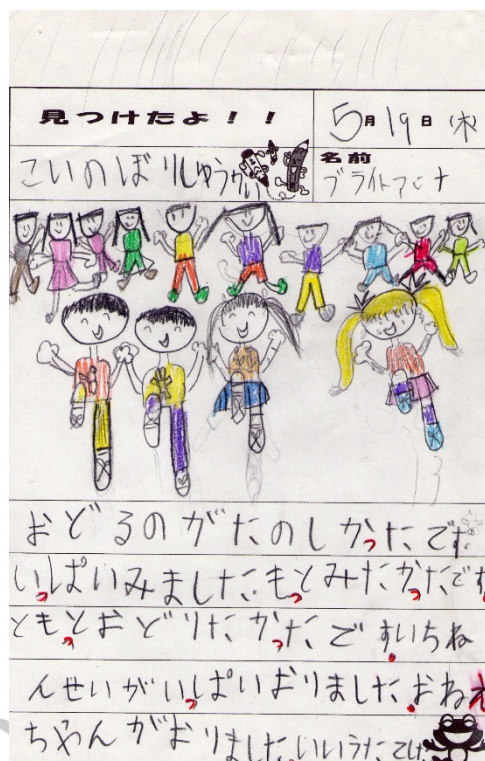 見つけたよ!!
5月19日(木)
こいのぼりしゅうかい
名前
ブライトアンナ
おどるのがたのしかったです
いっぱいみました.もっとみたかったです
ともっとおどりたかったです.いちね
んせいがいっぱいおりました.おねえ
ちゃんがおりました.いいうたでし